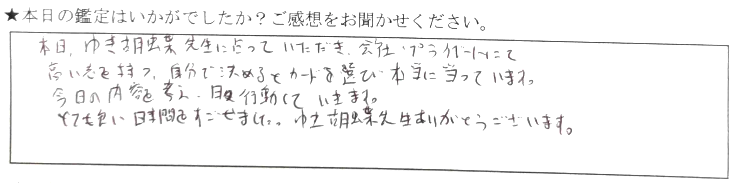 ★本日の鑑定はいかがでしたか？ご感想をお聞かせください。
本日、ゆき胡蝶葉先生に占っていただき、会社・プライベートにて
高い志を持つ、自分で決めるとカードを選び本当に当っています。
今日の内容を考え、日々行動していきます。
とても良い時間をすごせました。ゆき胡蝶葉先生ありがとうございます。